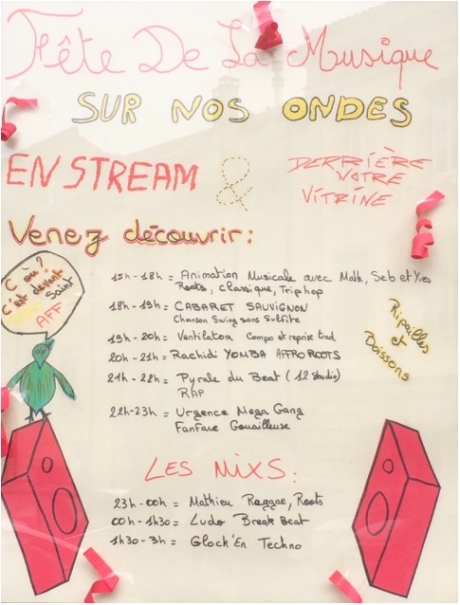 Fête De La Musique
SUR NOS ONDES
EN STREAM
&
DERRIÈRE
NOTRE
VITRINE
Venez découvrir :
C où ?
C'est devant
Saint
AFF
15h-18h = Animation Musicale avec Math, Seb et Yves
Roots, Classique, Trip hop
18h-19h = CABARET SAUVIGNON
Chanson Swing sans Sulfite
19h-20h = Ventilator Compo et reprise trad
20h-21h = Rachidi YOMBA AFFRO ROOTS
21h-22h = Pyrale du Beat (12 studio)
RAP
22h-23h = Urgence Mega Gang
Fanfare Gouailleuse
Ripailles
et
Boissons
LES MIXS :
23h-00h = Mathieu Raggae, Roots
00h-1h30 = Ludo Break Beat
1h30-3h = Glock'En Techno